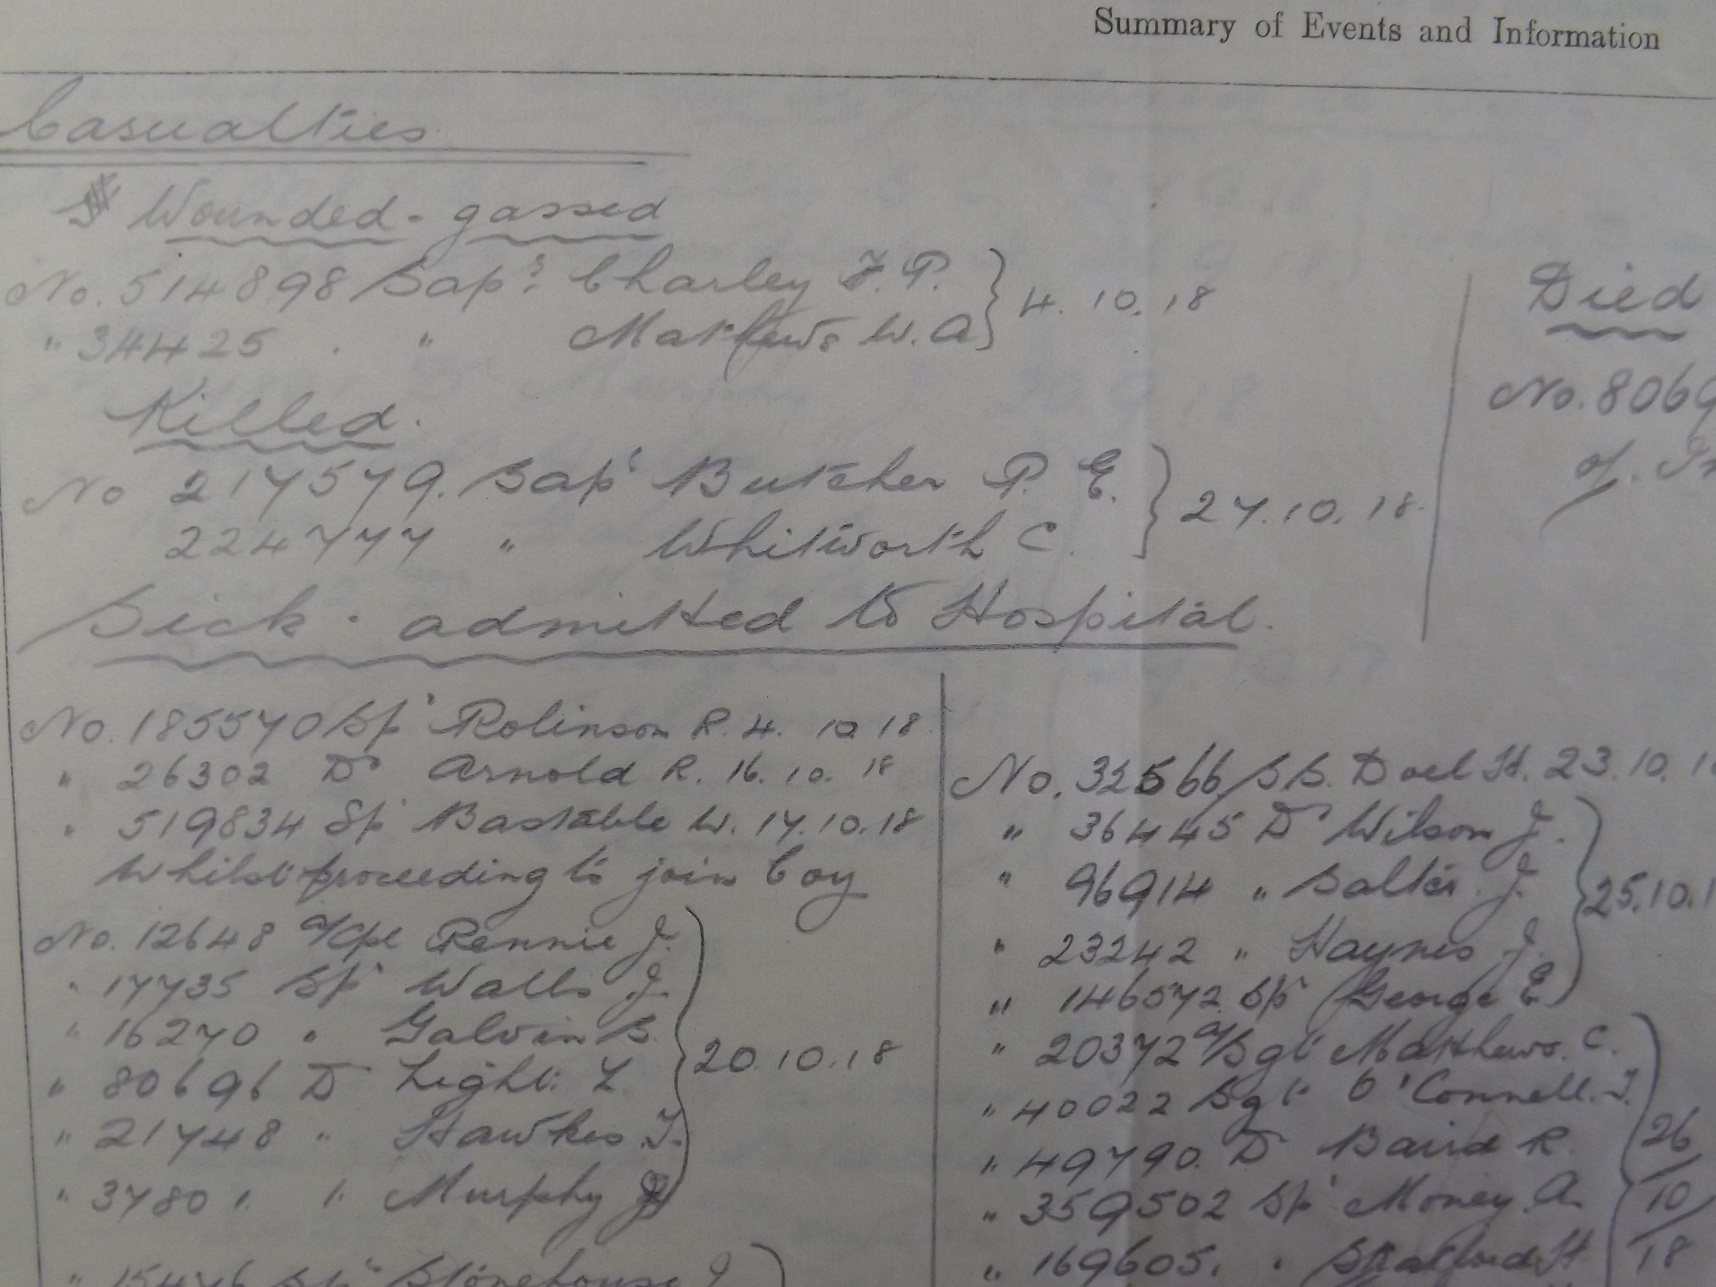 Summary of Events and Information
Casualties
Wounded - gassed
No. 514898 Sapr. Charley F. P. } 4.10.18
" 34425 . " Matthews W. A
Killed.
No 217579. Sapr Butcher P. E. } 27.10.18.
224777 " Whitworth C.
Died
No. 8069
of
Sick - admitted to Hospital.
No. 185570 Spr Rolinson R. 4. 10 18
" 26302 Dr Arnold R. 16. 10. 18
" 519834 Spr Bastable W. 17.10.18
Whilst proceeding to join Coy
No. 12648 a/Cpl Rennie J.
" 17735 Spr Walls J.
" 16270 " Galvin B.
" 80696 Dr Light L } 20.10.18
" 21748 " Hawkes T.
" 3780 " " Murphy J
" 15476 Spr Stonehouse J
No. 32566 S.S. Doel H. 23.10.1
" 36445 Dr Wilson J.
" 96914 " Salter J. } 25.10.1
" 23242 " Haynes J.
" 146572 Spr George E
" 20372 a/Sgt Matthews. C.
" 40022 Sgt O'Connell. T.
" 49790. Dr Baird R. } 26/10/18
" 359502 Spr Money. A.
" 169605. " H